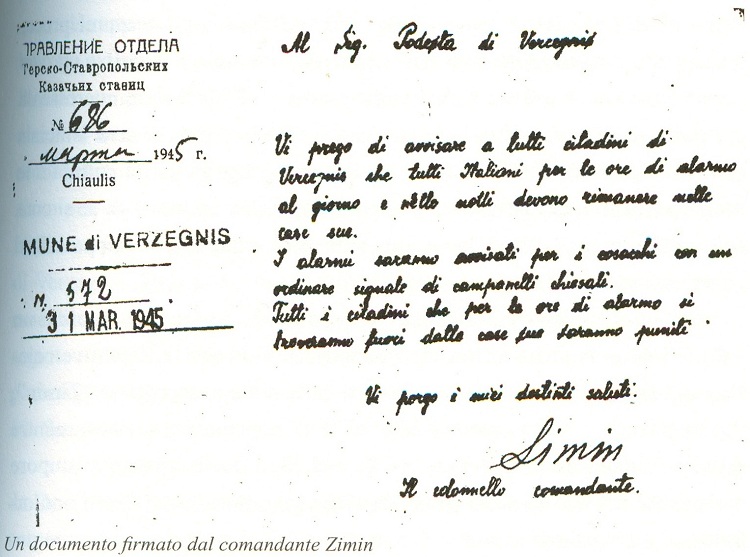 ПРАВЛЕНИЕ ОТДЕЛА
Терско-Ставропольских
Казачьих станиц
№ 686
марта 1945 г.
Chiaulis
MUNE di VERZEGNIS
N. 572
31 MAR. 1945
Al Sig. Podesta di Vercegnis
Vi prego di avvisare a tutti citadini di
Vercegnis che tutti Italiani per le ore di alarmo
al giorno e nello notti devono rimanere nelle
case sue.
I alarmii saranno avvisati per i cosacchi con un
ordinare signale di campanelli chiesali.
Tutti i citadini che per le ore di alarmo si
troveranno fuori dalle case sue saranno puniti
Vi porgo i miei destinti saluti.
Simin
Il colonnello comandante.
Un documento firmato dal comandante Zimin